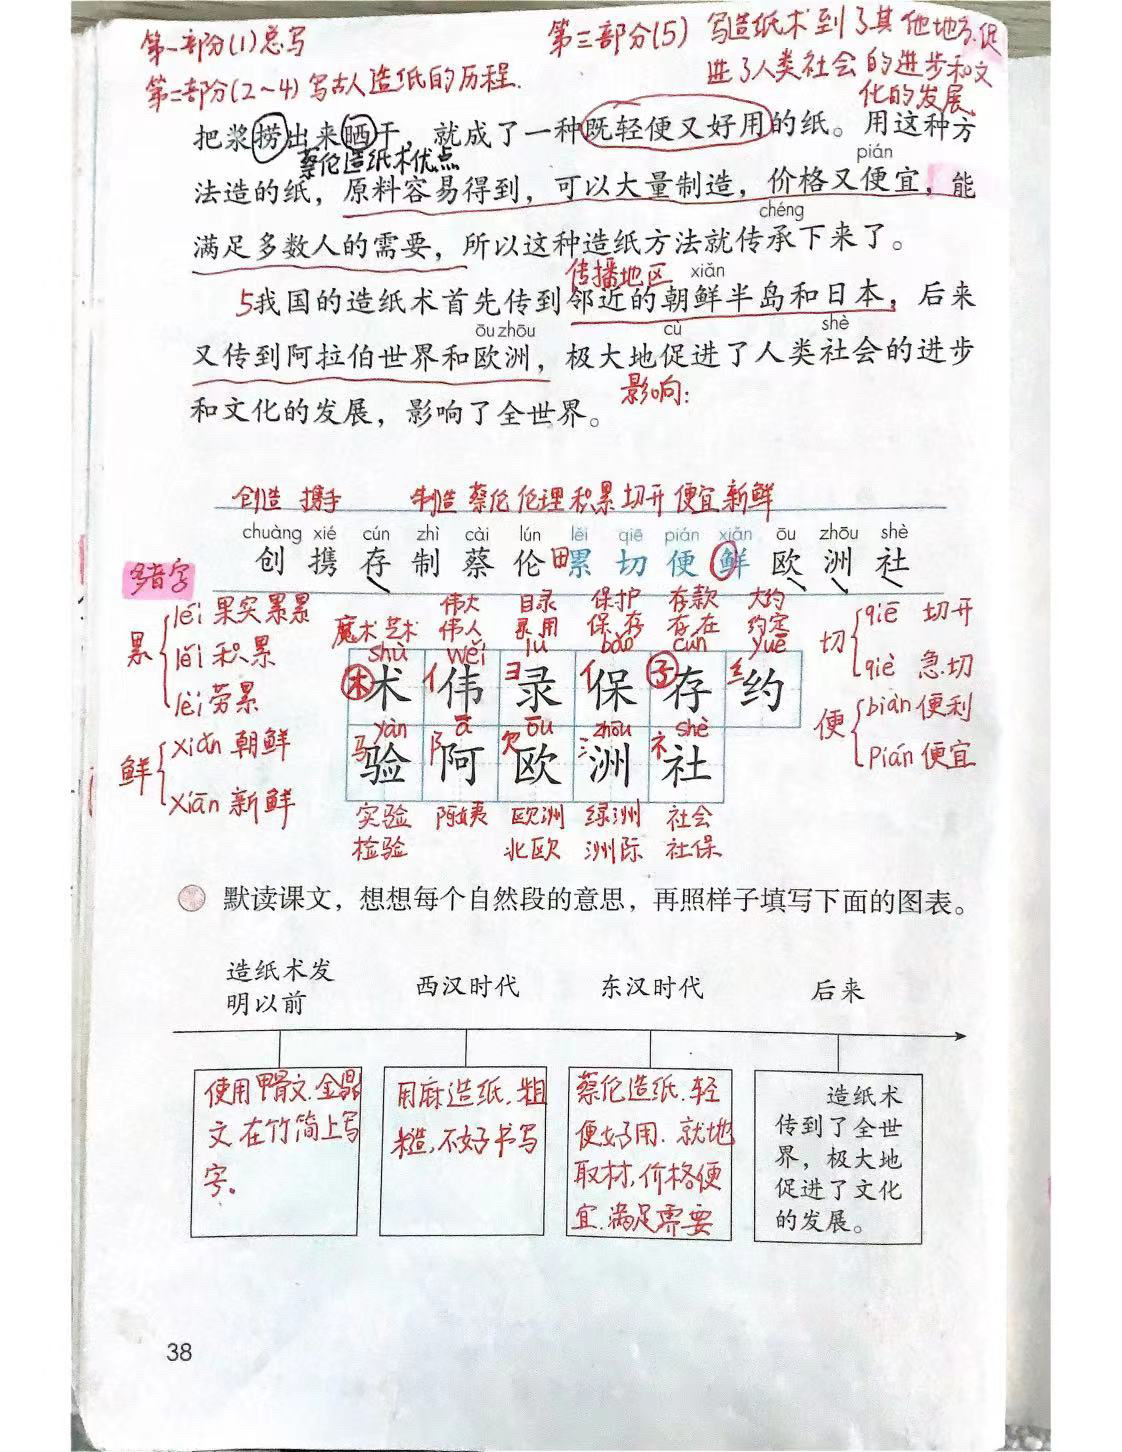 第一部分(1)总写
第三部分(5) 写造纸术到了其他地方.促
进了人类社会的进步和文
化的发展.
第二部分(2~4)写古人造纸的历程.
把浆捞出来晒干，就成了一种既轻便又好用的纸。用这种方
蔡伦造纸术优点
pián
法造的纸，原料容易得到，可以大量制造，价格又便宜，能
chéng
满足多数人的需要，所以这种造纸方法就传承下来了。
传播地区
xiǎn
5我国的造纸术首先传到邻近的朝鲜半岛和日本，后来
ōu zhōu cù shè
又传到阿拉伯世界和欧洲，极大地促进了人类社会的进步
影响:
和文化的发展，影响了全世界。
创造 携手 制造 蔡伦 伦理 积累 切开 便宜 新鲜
chuàng xié cún zhì cài lún lěi qiē pián xiǎn ōu zhōu shè
创 携 存 制 蔡 伦 田累 切 便 鲜 欧 洲 社
多音字
累 léi 果实累累
lěi 积累
lèi 劳累
鲜 xiǎn 朝鲜
xiān 新鲜
伟大 目录 保护 存款 大约
魔术 艺术 伟人 录用 保存 存在 约定
shù wěi lù bǎo cún yuē
木 术 亻 伟 彐 录 亻 保 子 存 纟 约
yàn ā ōu zhōu shè
马 验 阝 阿 欠 欧 氵 洲 礻 社
实验 阿姨 欧洲 绿洲 社会
检验 北欧 洲际 社保
切 qiē 切开
qiè 急切
便 biàn 便利
pián 便宜
默读课文，想想每个自然段的意思，再照样子填写下面的图表。
造纸术发
明以前
西汉时代
东汉时代
后来
使用甲骨文.金鼎
文 在竹简上写
字.
用麻造纸.粗
糙,不好书写
蔡伦造纸.轻
便好用.就地
取材,价格便
宜.满足需要
造纸术
传到了全世
界，极大地
促进了文化
的发展。
38